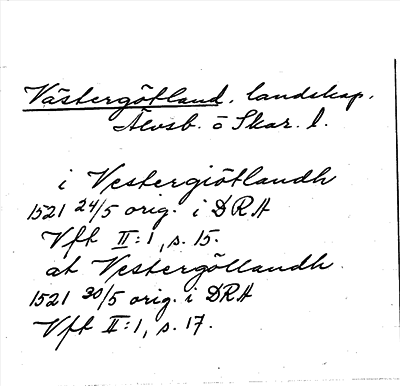 Västergötland, landskap,
Älvsb. o Skar. l.
i Vestergiötlandh
1521 24/5 orig. i DRA
Vft II:1, s. 15.
at Vestergötlandh
1521 30/5 orig. i DRA
Vft II:1, s. 17.